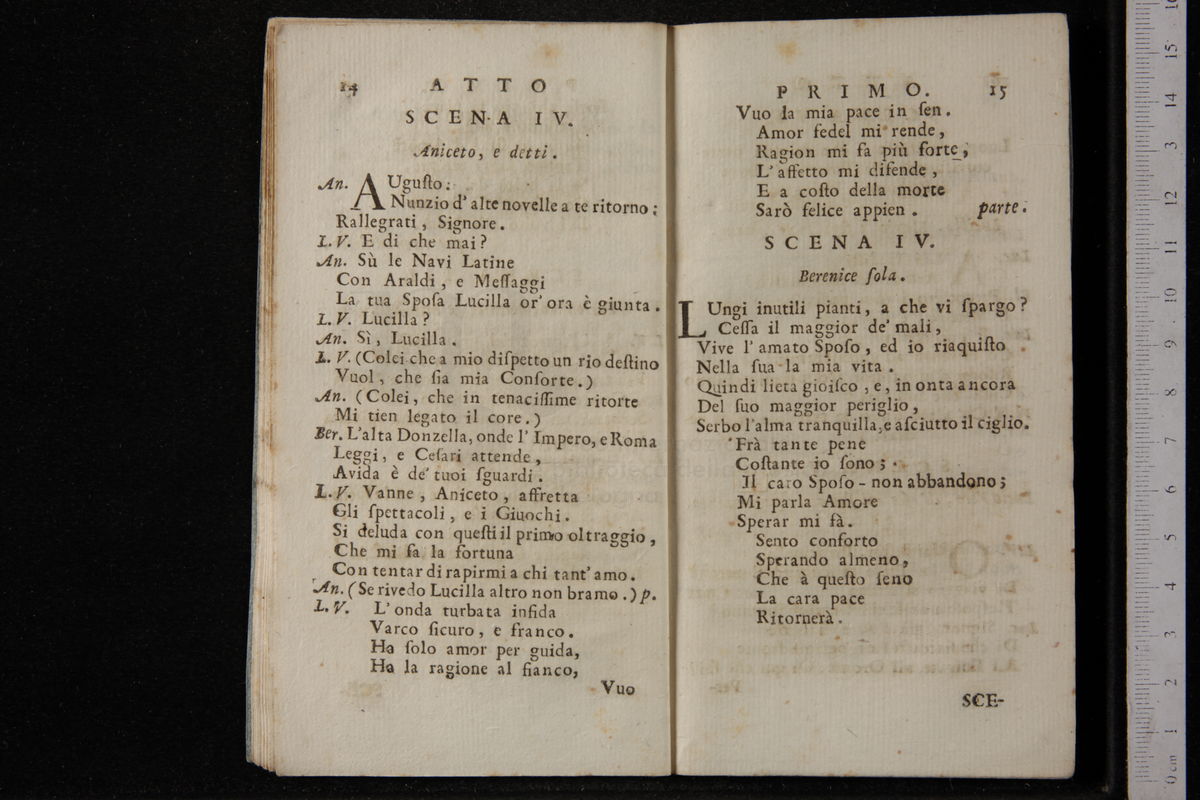 14 ATTO
SCENA IV.
Aniceto, e detti.
An. AUguſto:
Nunzio d' alte novelle a te ritorno;
Rallegrati, Signore.
L. V. E di che mai?
An. Sù le Navi Latine
Con Araldi, e Meſſaggi
La tua Spoſa Lucilla or' ora è giunta.
L. V. Lucilla?
An. Sì, Lucilla.
L. V. (Colei che a mio diſpetto un rio deſtino
Vuol, che ſia mia Conſorte.)
An. (Colei, che in tenaciſſime ritorte
Mi tien legato il core.)
Ber. L'alta Donzella, onde l' Impero, e Roma
Leggi, e Ceſari attende,
Avida è de' tuoi ſguardi.
L. V. Vanne, Aniceto, affretta
Gli ſpettacoli, e i Giuochi.
Si deluda con queſti il primo oltraggio,
Che mi fa la fortuna
Con tentar di rapirmi a chi tant' amo.
An. (Se rivedo Lucilla altro non bramo.) p.
L. V. L' onda turbata infida
Varco ſicuro, e franco.
Ho ſolo amor per guida,
Ho la ragione al fianco,
Vuo
PRIMO. 15
Vuo la mia pace in ſen.
Amor fedel mi rende,
Ragion mi fa più forte,
L' affetto mi difende,
E a coſto della morte
Sarò felice appien. parte.
SCENA IV.
Berenice ſola.
LUngi inutili pianti, a che vi ſpargo?
Ceſſa il maggior de' mali,
Vive l' amato Spoſo, ed io riaquiſto
Nella ſua la mia vita.
Quindi lieta gioiſco, e, in onta ancora
Del ſuo maggior periglio,
Serbo l'alma tranquilla, e aſciutto il ciglio.
Frà tante pene
Coſtante io ſono;
Il caro Spoſo - non abbandono;
Mi parla Amore
Sperar mi fà.
Sento conforto
Sperando almeno,
Che à queſto ſeno
La cara pace
Ritornerà.
SCE-
0 cm 1 2 3 4 5 6 7 8 9 10 11 12 13 14 15